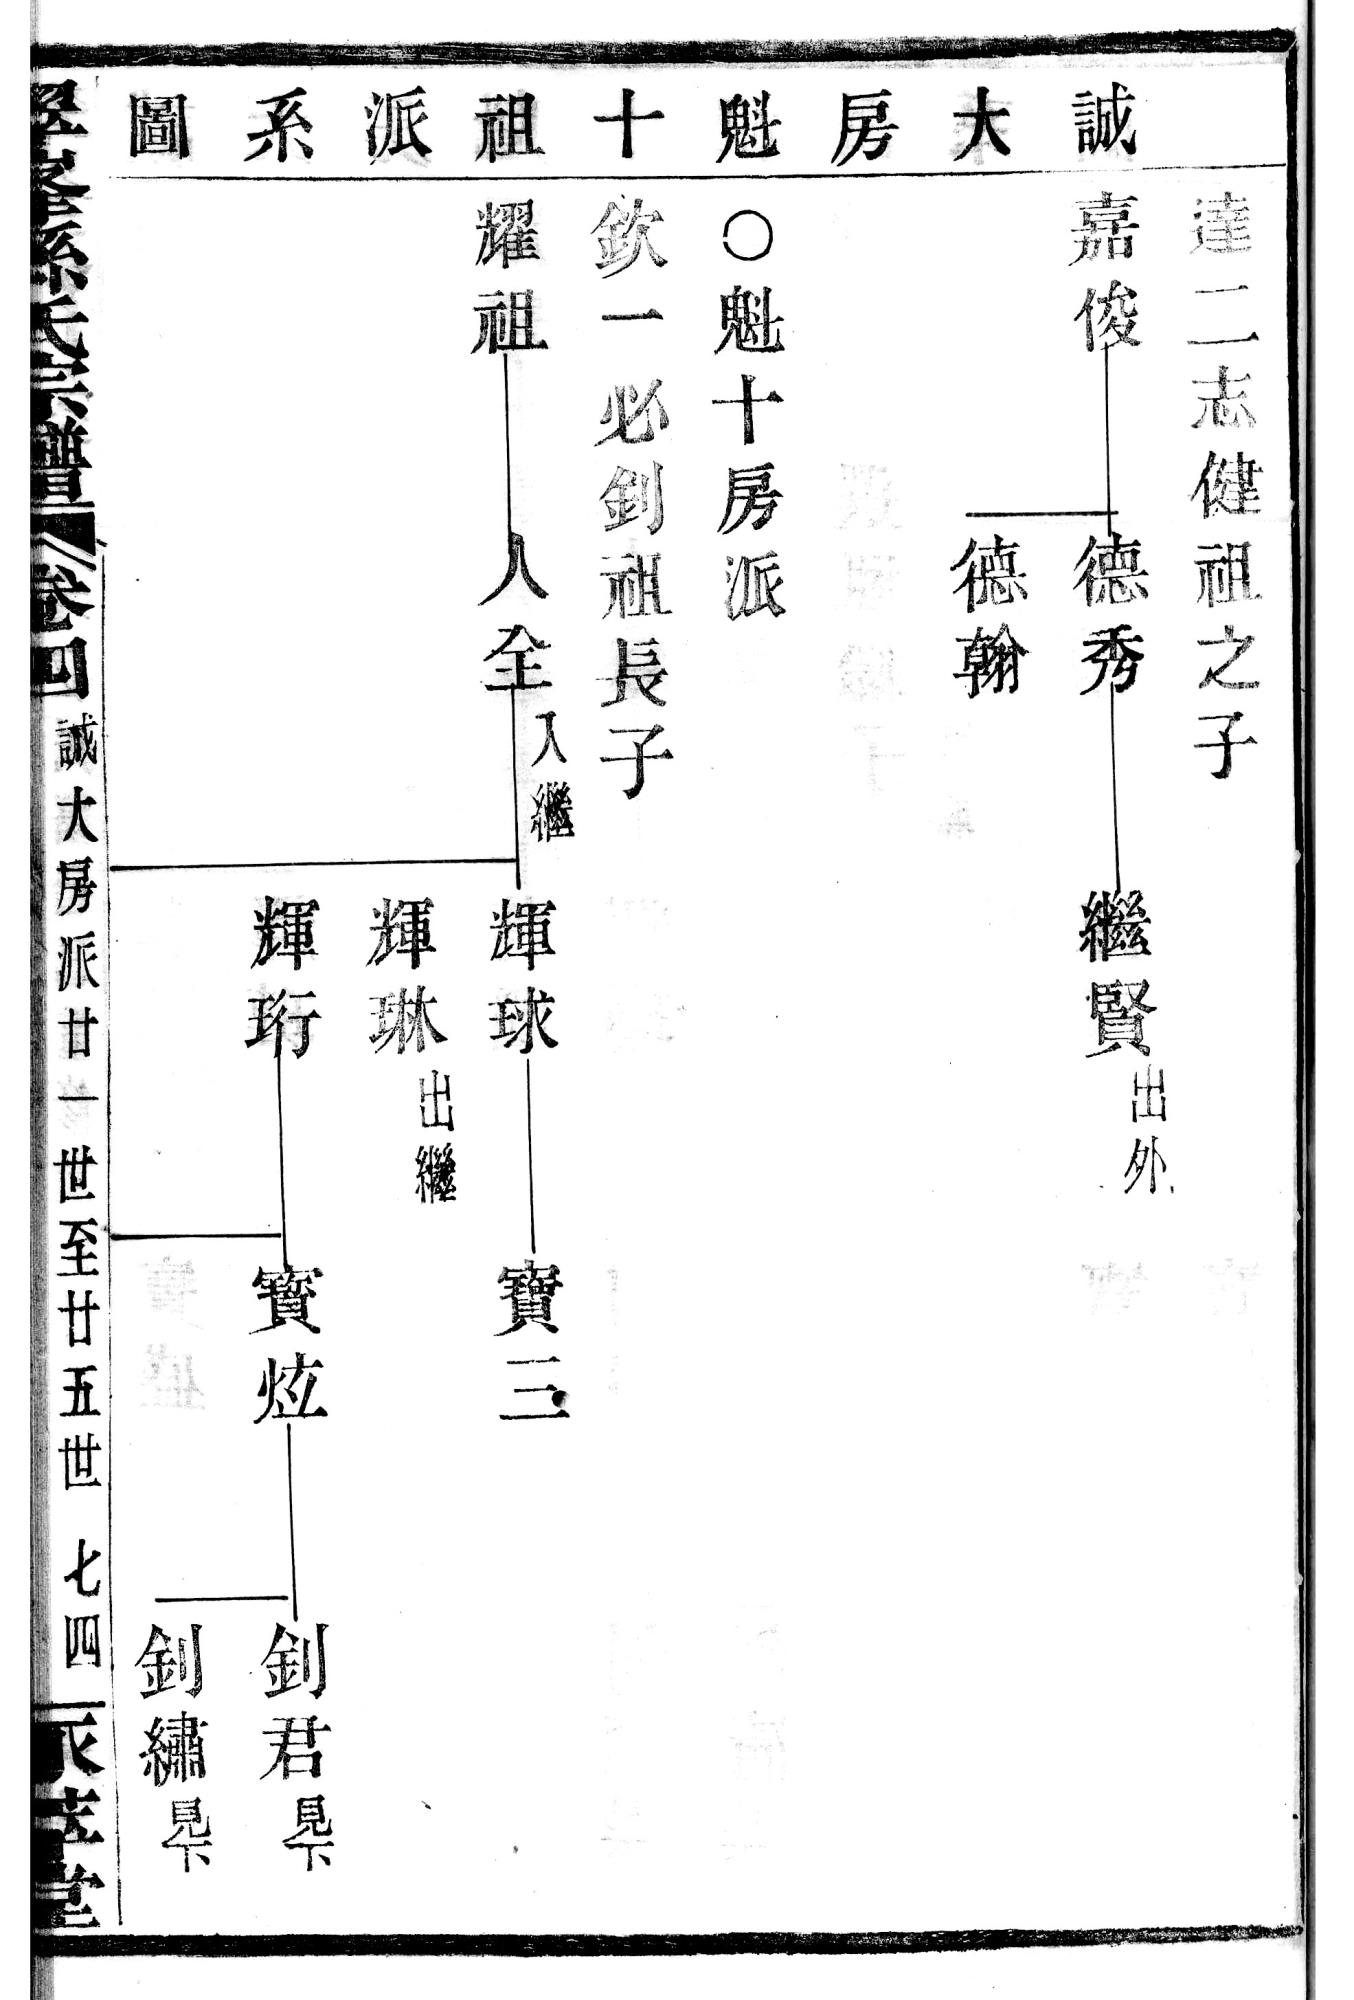 誠大房魁十祖派系圖
達二志健祖之子
嘉俊
德秀
德翰
繼賢出外
〇魁十房派
欽一必釗祖長子
耀祖
人全入繼
輝球
輝琳出繼
輝珩
寶三
寳炫
釗君見下
釗繡見下
孫氏宗譜
卷四
誠大房派廿一世至廿五世
七四
堂